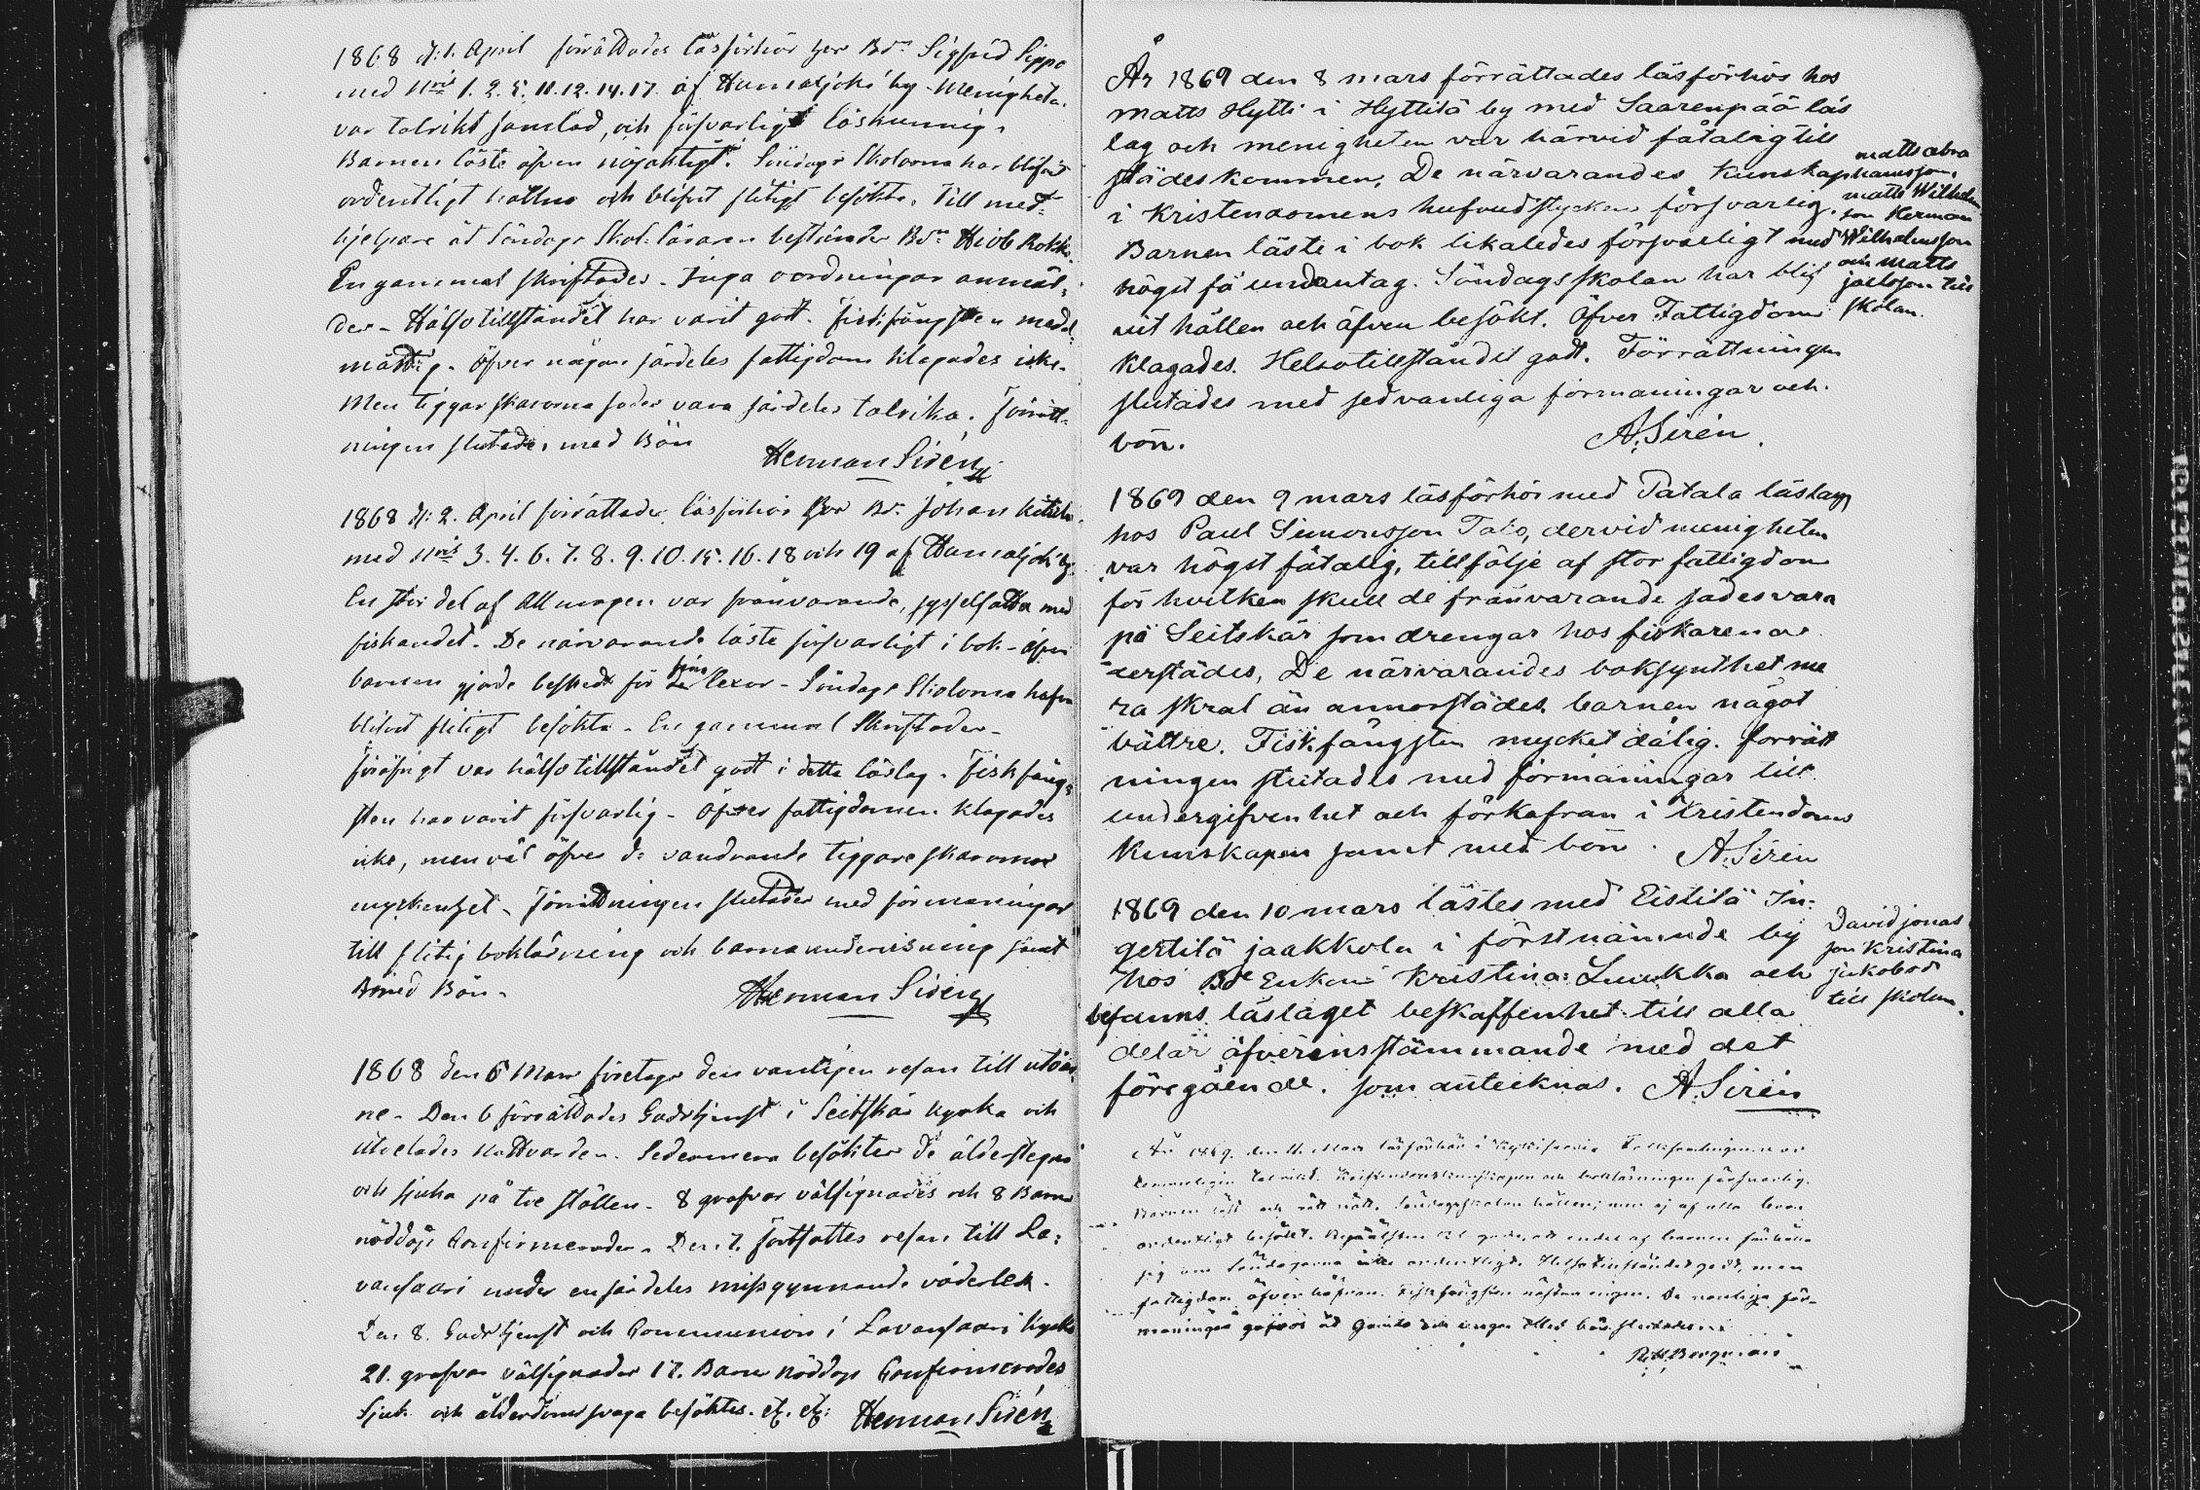 1868 d: 1. April förrättades läsförhör hos Bd: Sigfrid Sippo
med N:ris 1. 2. 5. 11. 12. 14. 17. af Humaljoki by. Menigheten
var talrikt samlad, och försvarligt läskunnig.
Barnen läste äfven nöjaktigt. Söndags Skolorna har blifvit
ordentligt hållna och blifvit flitigt besökta. Till med-
hjelpare åt Söndags Skol. läraren bestämdes Bd: Hiob Rokka.
En gammal skriftades. Inga oordningar anmäl-
des. Hälsotillståndet har varit godt. fiskfångsten medel-
måttig. Öfver någon särdeles fattigdom klagades icke.
Men tiggarskarorna sades vara särdeles talrika. Förrätt-
ningen slutades med Bön
Herman Sirén
1868 d: 2. April förrättades läsförhör hos Bd: Johan
med N:ris 3. 4. 6. 7. 8. 9. 10. 15. 16. 18 och 19 af Humaljoki by.
En stor del af Allmogen var frånvarande, sysselsatta med
fiskandet. De närvarande läste försvarligt i bok - äfven
barnen gjorde besked för sina lexor - Söndags Skolorna hafva
blifvit flitigt besökta. En gammal Skriftades -
Föröfrigt var hälsotillståndet godt i detta läslag. Fiskfång-
sten har varit försvarlig - Öfver fattigdomen klagades
icke, men väl öfver de vandrande tiggareskarornas
myckenhet. Förrättningen slutades med förmaningar
till flitig bokläsning och barnaundervisning samt
med Bön.
Herman Sirén
1868 den 5 Mars företogs den vanligen resan till utöar-
ne. Den 6 förrättades Gudstjenst i Seitskär kyrka och
utdelades Nattvarden. Sedermera besöktes de ålderstegna
och sjuka på tre ställen. 8 grafvar välsignades och 8 Barns
nöddop Confirmerades. Den 7. fortsattes resan till La-
vansaari under en särdeles missgynnande väderlek.
Den 8. Gudstjenst och Communion i Lavansaari kyrka
21. grafvar välsignades 17. Barns Nöddop Confirmerades
Sjuk. och ålderdomssvaga besöktes. etc. etc: Herman Sirén
År 1869 den 8 mars förrättades läsförhör hos
Matts Hytti i Hyttilä by med Saarenpää läs
lag och menigheten var härvid fåtalig till
städeskommen. De närvarandes Kunskap
i Kristendomens hufvudstycken försvarlig.
Barnen läste i bok likaledes försvarligt med
högst få undantag. Söndagsskolan har blif
vit hållen och äfven besökt. Öfver Fattigdom
klagades. Helsotillståndet godt. Förrättningen
slutades med sedvanliga förmaningar och
bön.
A. Sirén.
matts abra
hamsson,
matts Wilhelm
son Herman
Wilhelmsson
och matts
joelsson till
skolan.
1869 den 9 mars läsförhör med Tatala läslag
hos Paul Simonsson Tato, dervid menigheten
var högst fåtalig, tillfölje af stor fattigdom
för hvilken skull de frånvarande sades vara
på Seitskär som drengar hos fiskarena
derstädes, De närvarandes boksynthet me
ra skral än annorstädes. barnen något
bättre. Fiskfångsten mycket dålig. förrätt
ningen slutades med förmaningar till
undergifvenhet och förkofran i Kristendoms
Kunskapen samt med bön. A. Sirén
1869 den 10 mars lästes med Eistilä In-
gertilä jaakkola i förstnämnde by
hos Bde Enkan Kristina Luukka och
befanns läslaget beskaffenhet till alla
delar äfverensstämmande med det
föregående. som antecknas. A. Sirén
David jonas
son Kristina
jakobsd
till skolan.
År 1869. den 11. Mars läsförhör i
talrikt. och bokläsningen försvarlig.
Barnen läst och rätt nätt. Söndagsskolan hållen; men ej af alla
ordentligt besökt. af barnen
sig om Söndagarna icke ordentligt. Helsotillståndet godt, men
fattigdom öfver höfvan. Fiskfångsten nästan ingen. De vanliga för-
maningar gåfvos åt gamla och unga. Med bön slutades.